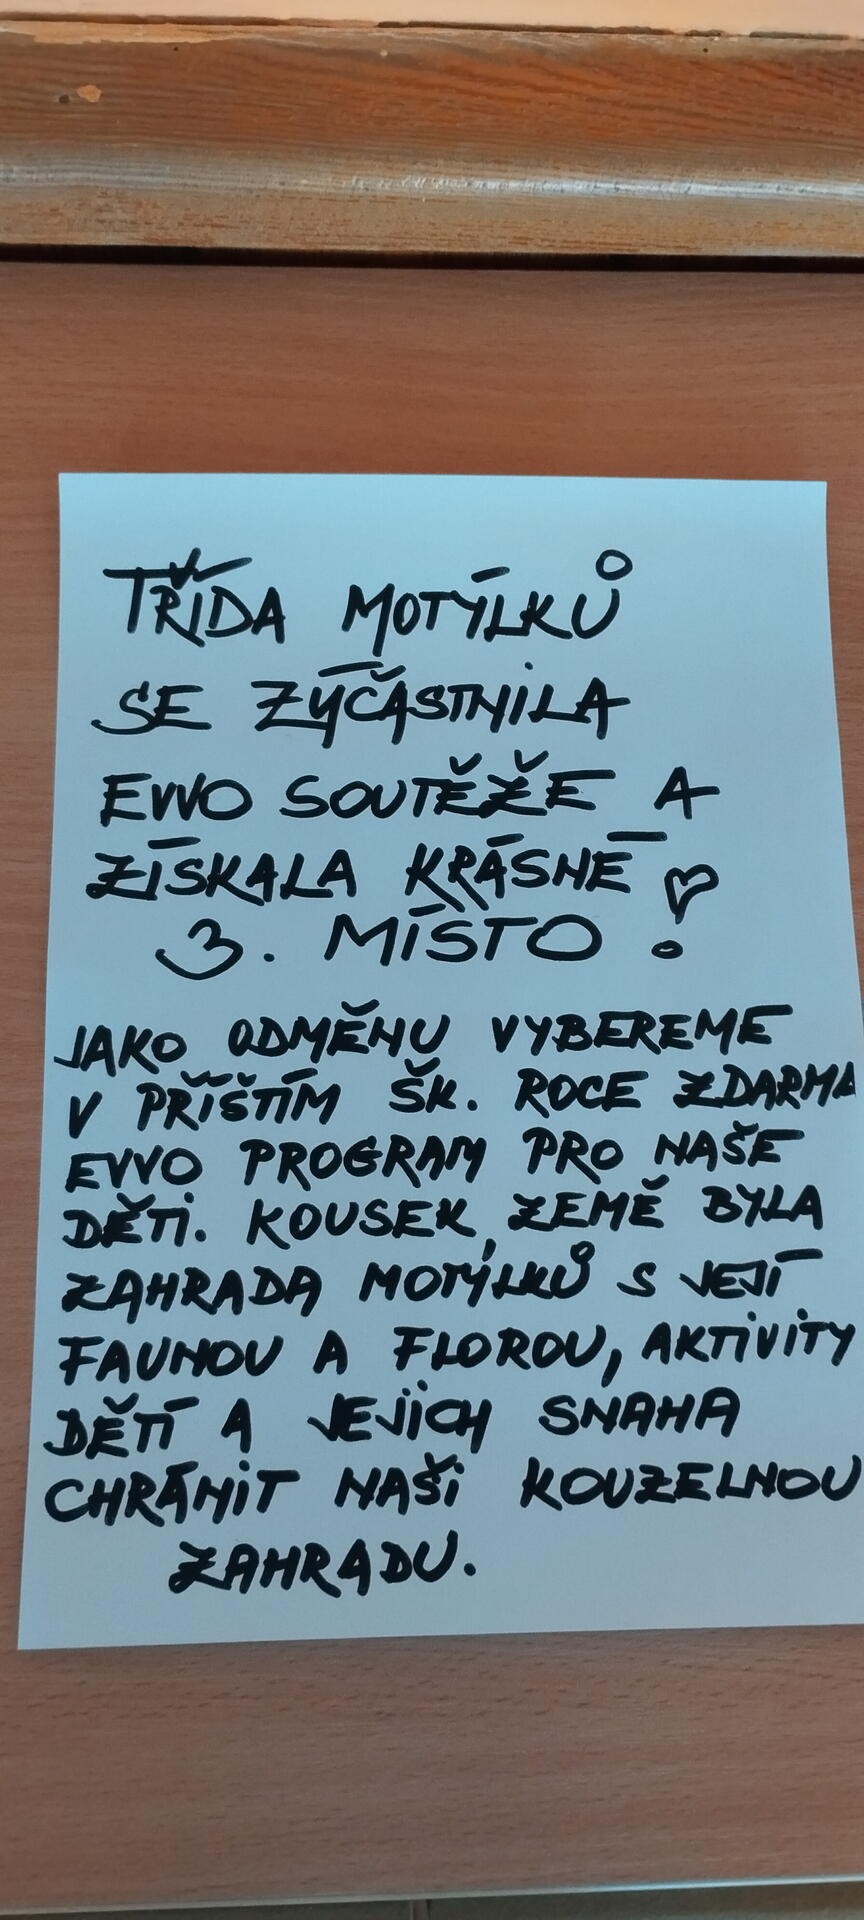 TŘÍDA MOTÝLKŮ
SE ZÝČASTNILA
EVVO SOUTĚŽE A
ZÍSKALA KRÁSNÉ
3. MÍSTO!
JAKO ODMĚNU VYBEREME
V PŘÍŠTÍM ŠK. ROCE ZDARMA
EVVO PROGRAM PRO NAŠE
DĚTI. KOUSEK ZEMĚ BYLA
ZAHRADA MOTÝLKŮ S JEJÍ
FAUNOU A FLOROU, AKTIVITY
DĚTÍ A JEJICH SNAHA
CHRÁNIT NAŠI KOUZELNOU
ZAHRADU.